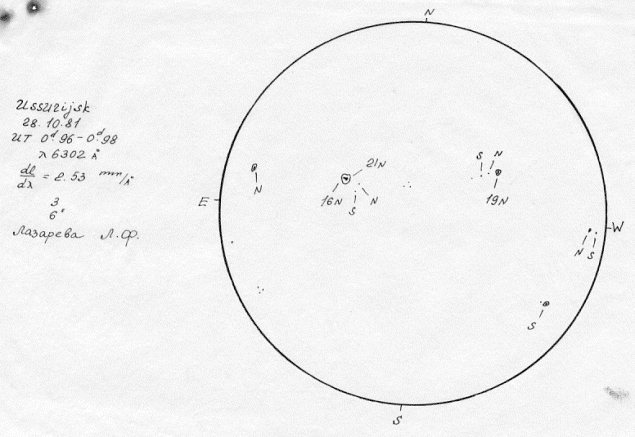 Ussurijsk
28.10.81
UT 0ᵈ.96-0ᵈ.98
λ 6302 Å
dl/dλ = 2.53 mm/Å
3
6ˢ
Лазарева Л.Ф.
N
E
W
S
N
21N
16N
S
N
S
N
19N
N
S
S